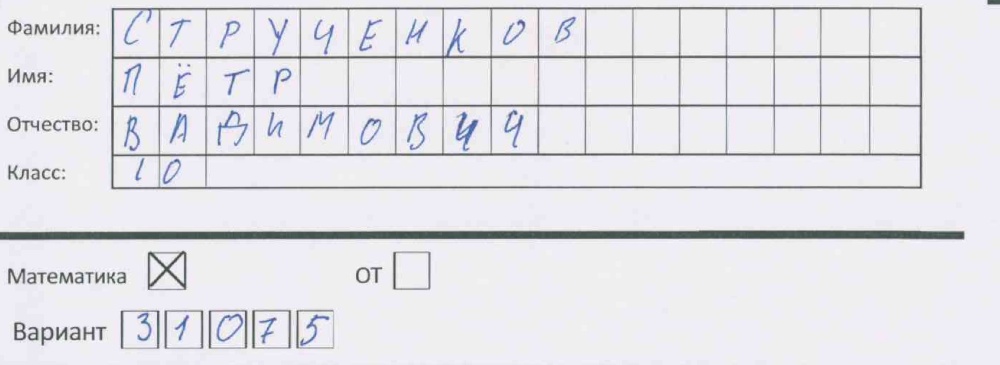 Фамилия: СТРУЧЕНКОВ
Имя: ПЁТР
Отчество: ВАДИМОВИЧ
Класс: 10
Математика ☒ ОТ ☐
Вариант 31075